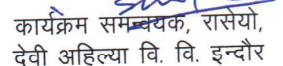 कार्यक्रम समन्वयक, रासेयो,
देवी अहिल्या वि. वि. इन्दौर